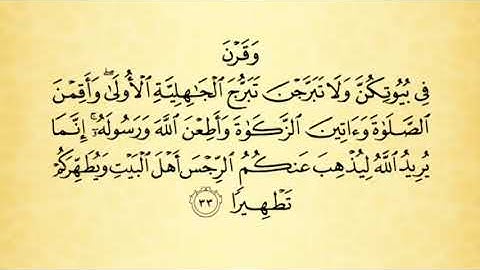 وَقَرْنَ
فِي بُيُوتِكُنَّ وَلَا تَبَرَّجْنَ تَبَرُّجَ الْجَٰهِلِيَّةِ الْأُولَىٰ ۖ وَأَقِمْنَ
الصَّلَوٰةَ وَءَاتِينَ الزَّكَوٰةَ وَأَطِعْنَ اللَّهَ وَرَسُولَهُۥٓ ۚ إِنَّمَا
يُرِيدُ اللَّهُ لِيُذْهِبَ عَنكُمُ الرِّجْسَ أَهْلَ الْبَيْتِ وَيُطَهِّرَكُمْ
تَطْهِيرًا ٣٣